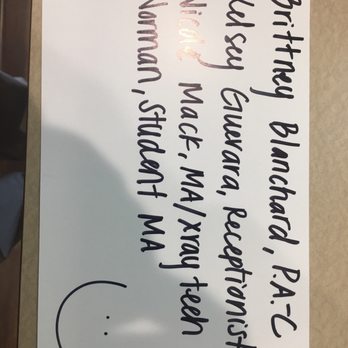 Brittney Blanchard, P.A-C
Kelsey Guevara, Receptionist
Nicole Mack, MA/xray tech
Norman, Student MA